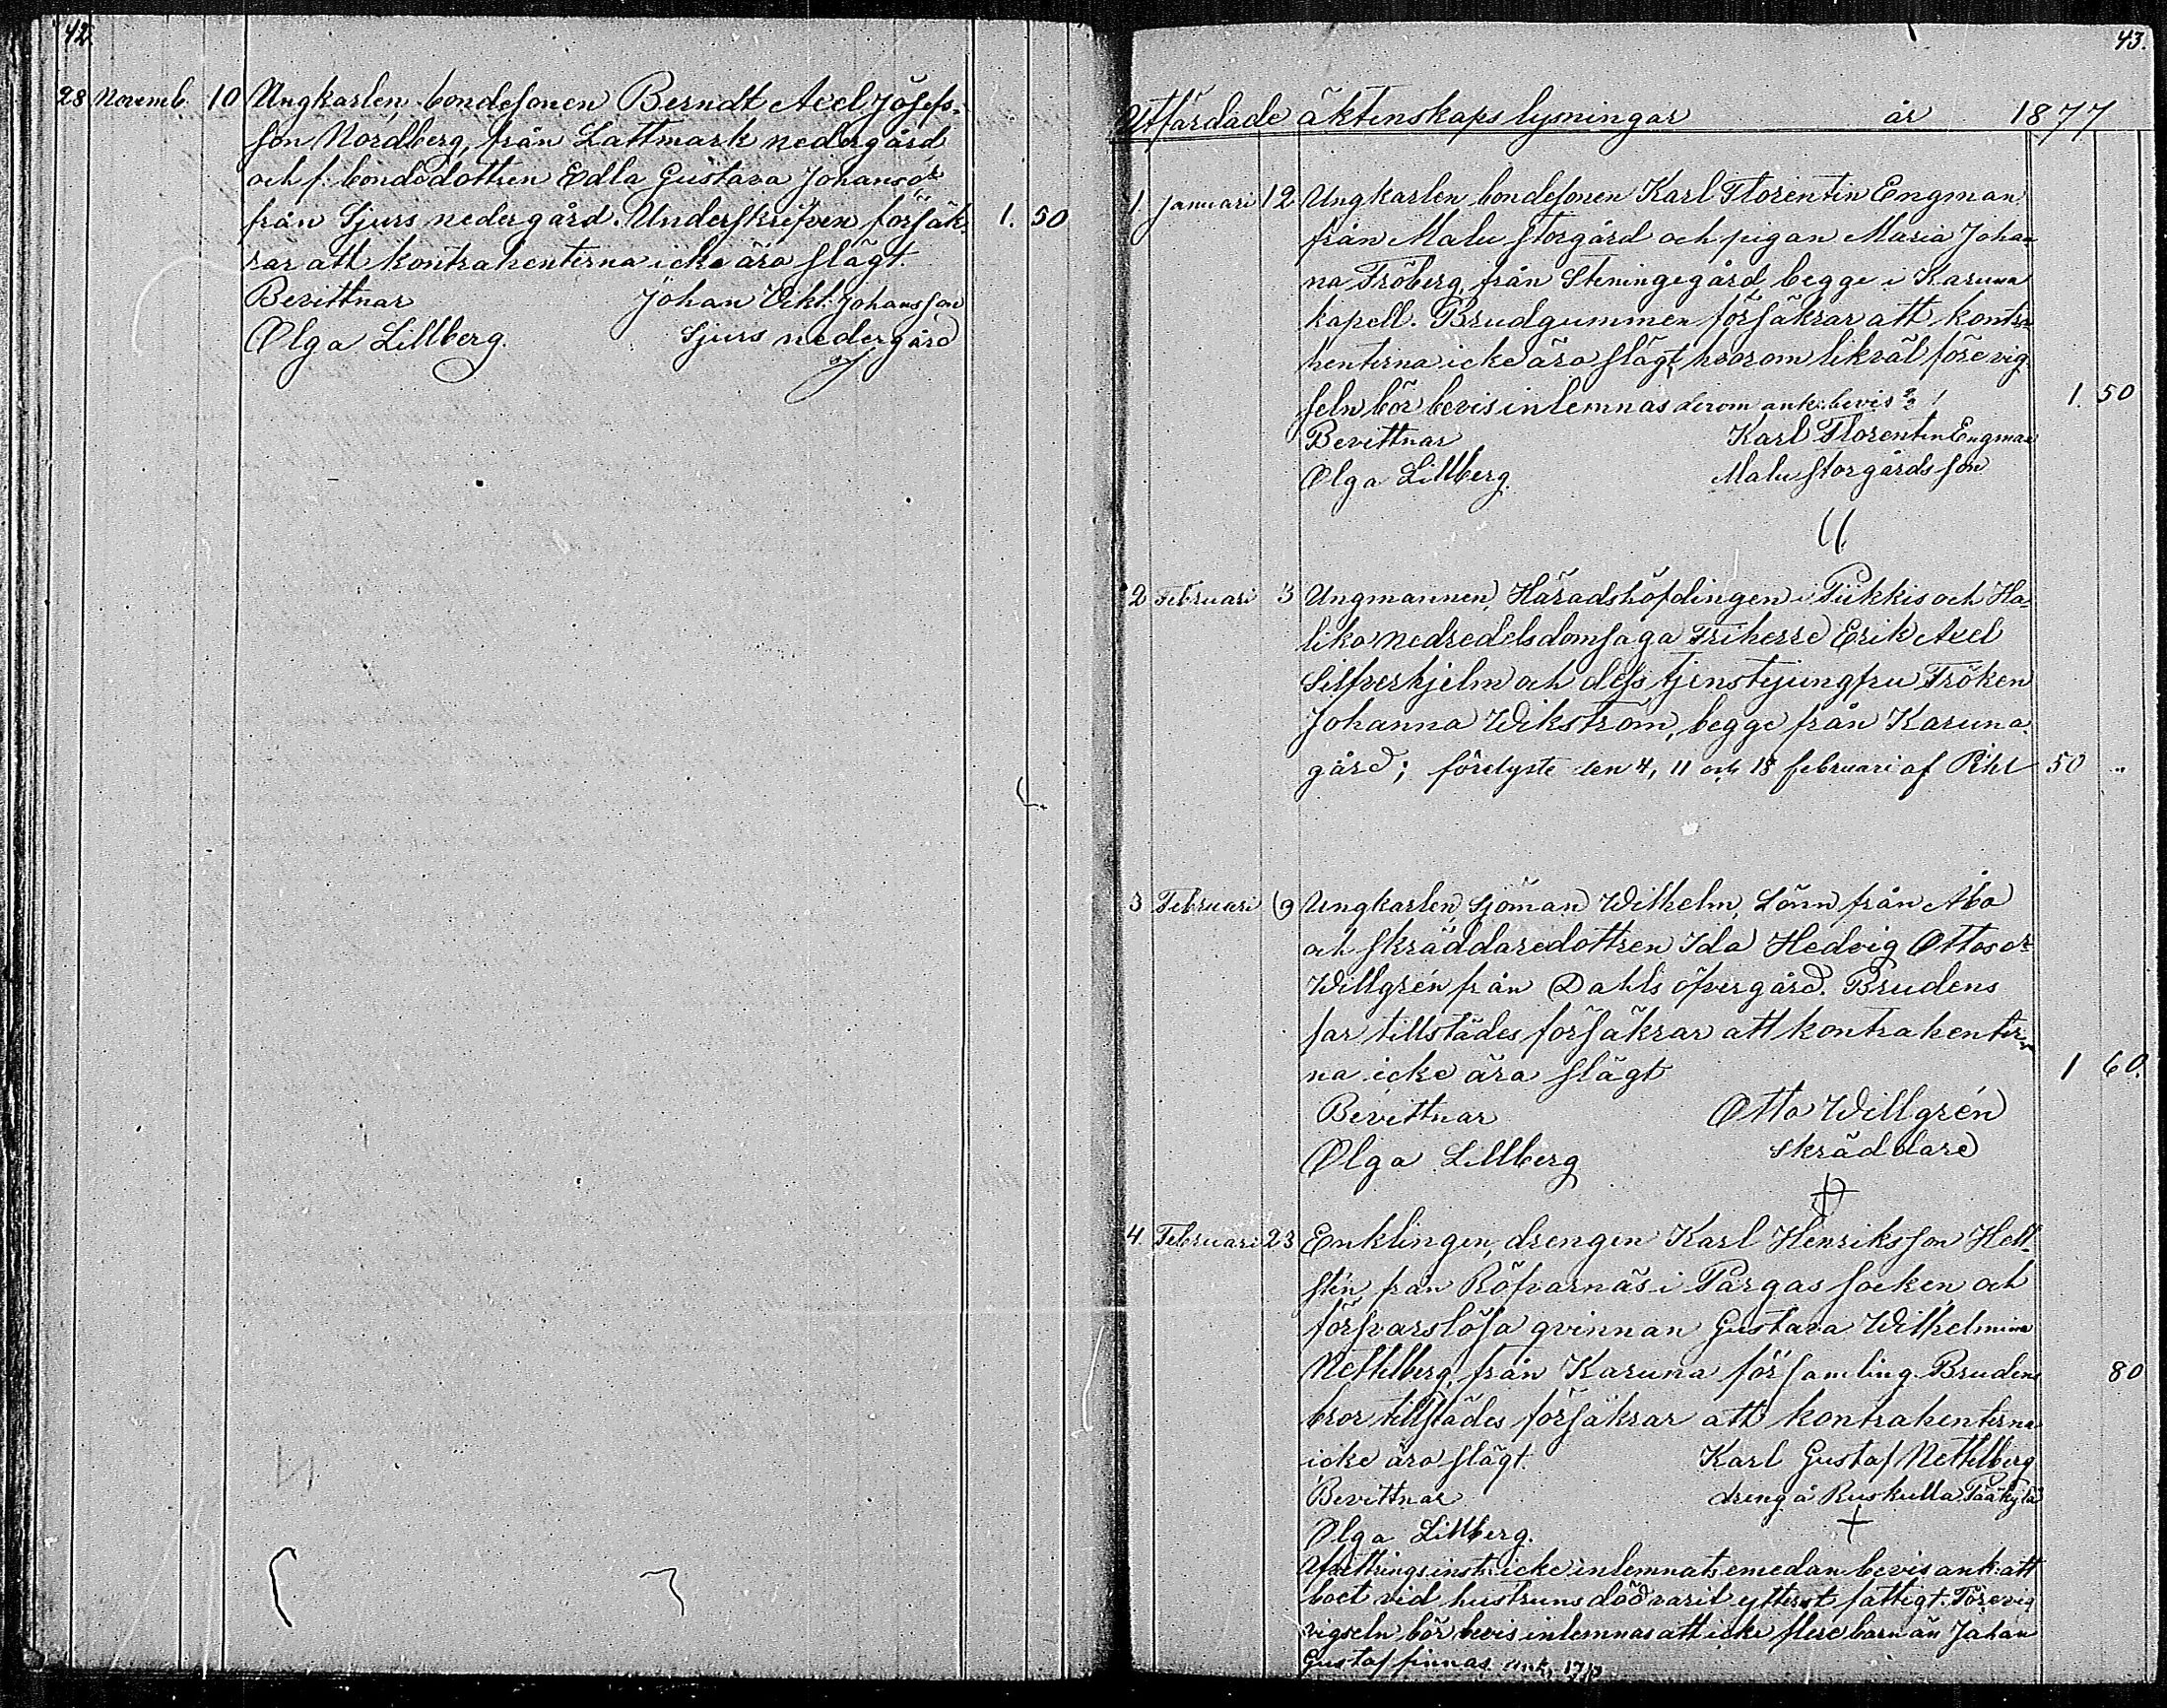 42.
28 Novemb. 10 Ungkarlen, bondesonen Berndt Axel Josefs-
son Nordberg, från Lattmark nedergård
och f. bondedottren Edla Gustava Johansdr
från Sjurs nedergård. Underskrifven försäk- 1. 50
rar att kontrahenterna icke äro slägt.
Bevittnar Johan Vikt. Johansson
Olga Lillberg. Sjurs nedergård
43.
Utfärdade äktenskaps lysningar år 1877
1 Januari 12 Ungkarlen, bondesonen Karl Florentin Engman
från Malu storgård och pigan Maria Johan
na Fröberg, från Steningegård, begge i Karuna
kapell. Brudgummen försäkrar att kontra
henterna icke äro slägt, hvarom likväl före vig
seln bör bevis inlemnas derom ank. bevis 1. 50
Bevittnar Karl Florentin Engman
Olga Lillberg. Malu storgårds son
2 Februari 3 Ungmannen, Häradshöfdingen i Piikkis och Ha-
liko nedredels domsaga Friherre Erik Axel
Silfverhjelm och dess tjenstejungfru Fröken
Johanna Wikström, begge från Karuna
gård; förelyste den 4, 11 och 18 februari af 50 "
3 Februari 9 Ungkarlen, Sjöman Wilhelm Lönn från Åbo
och skräddaredottren Ida Hedvig Ottosdr
Willgrén från Dahls öfvergård. Brudens
far tillstädes försäkrar att kontrahenter-
na icke äro slägt 1 60.
Bevittnar Otto Willgrén
Olga Lillberg skräddare
4 Februari 23 Enklingen, drengen Karl Henriksson Hell-
stén från Röfvarnäs i Pargas socken och
försvarslösa qvinnan Gustava Wilhelmina
Nettelberg, från Karuna församling. Brudens 80
bror tillstädes försäkrar att kontrahenterna
icke äro slägt. Karl Gustaf Nettelberg
Bevittnar dreng å Ruskulla Pääkylä
Olga Lillberg.
Afvittringsinstr. icke inlemnats emedan bevis ank. att
boet vid hustruns död varit ytterst fattigt. Före vig
vigseln bör bevis inlemnas att icke flere barn än Johan
Gustaf finnas. Ank.